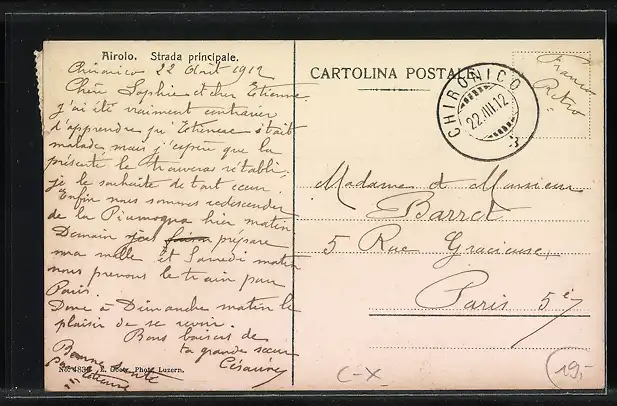 Airolo. Strada principale.
Chironico 22 Août 1912
Chère Sophie et cher Etienne.
j'ai été vraiment
d'apprendre qu'Etienne était
malade, mais j'espère que la
présente le trouvera rétabli,
je le souhaite de tout cœur.
Enfin nous sommes redescendus
de la Piumogna hier matin
Demain j' prépare
ma malle et Samedi matin
nous prenons le train pour
Paris.
Donc à Dimanche matin le
plaisir de se revoir.
Bons baisers de
ta grande sœur
Bonne Santé
Etienne
No. 4836 E. Goetz, Phot. Luzern.
CARTOLINA POSTALE.
CHIRONICO
22.VIII.12
Franco
Retro
Madame et Monsieur
Barret
5 Rue Gracieuse,
Paris 5e
C-X
19.-